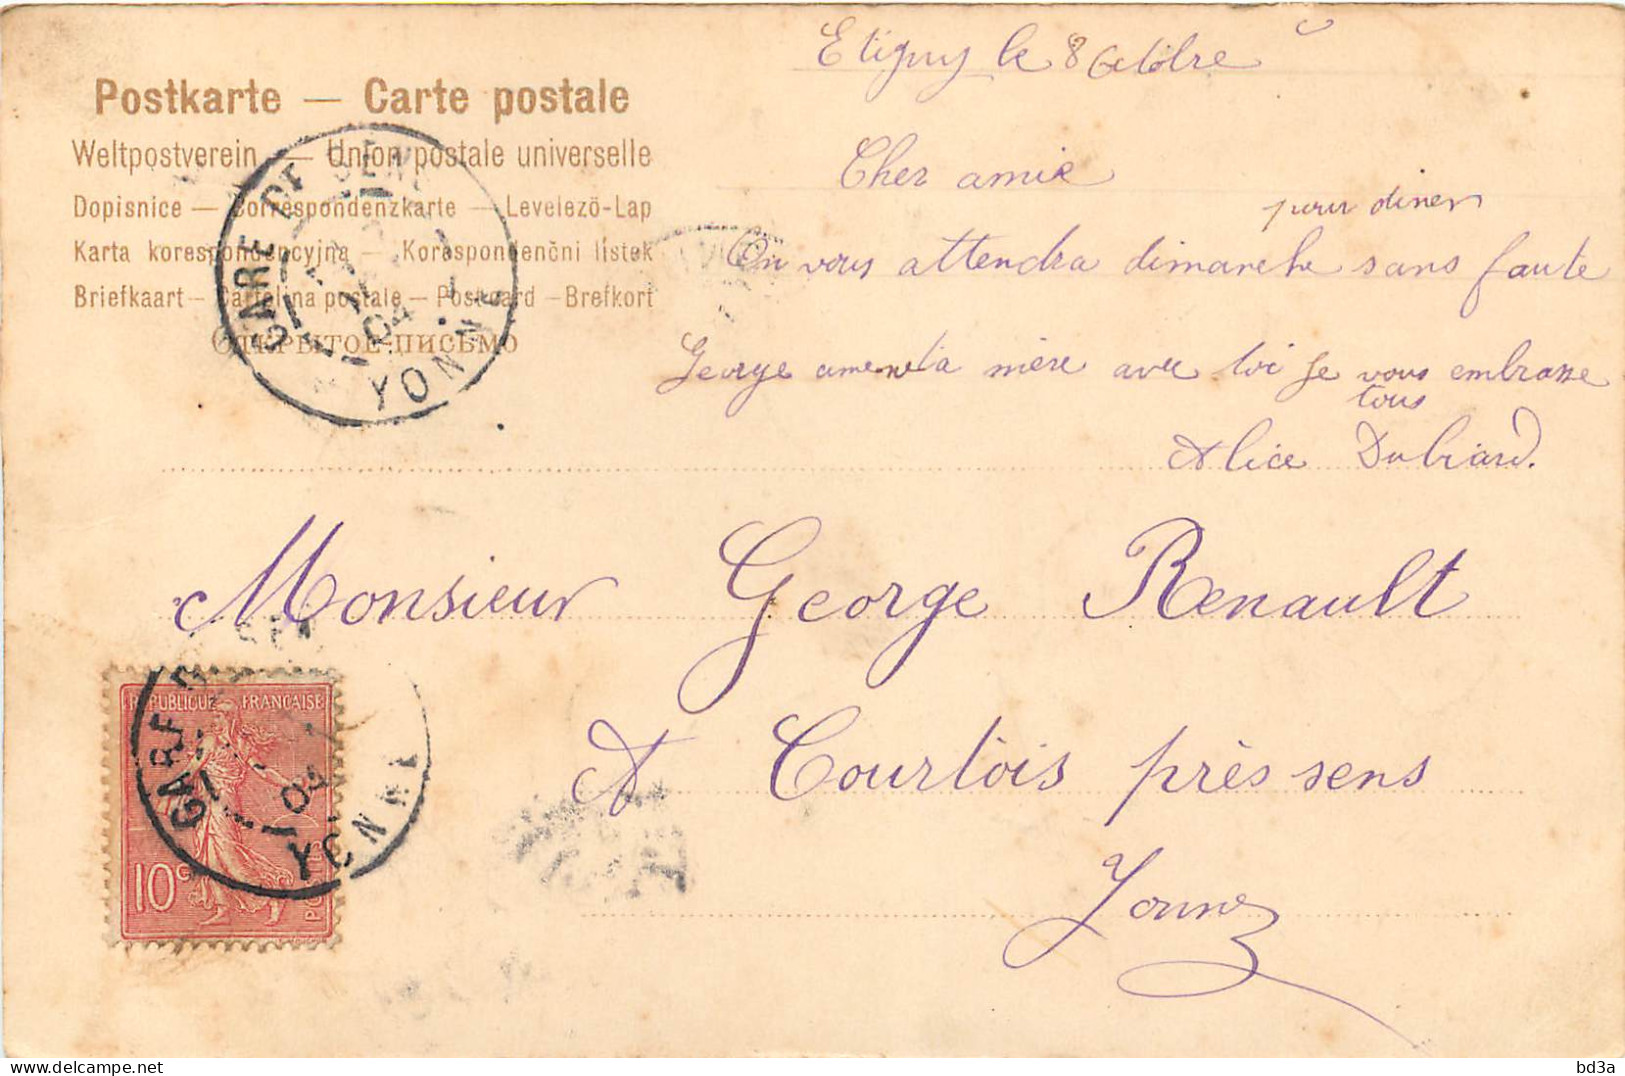 Etigny le 8 Octobre
Postkarte — Carte postale
Weltpostverein — Union postale universelle
Dopisnice — Correspondenzkarte — Levelezö-Lap
Karta korespondencyjna — Korespondenční lístek
Briefkaart — Cartolina postale — Postcard — Brefkort
Открытое письмо
GARE DE SENS
04
YONNE
Cher amie
pour diner
On vous attendra dimanche sans faute
George amene ta mère avec toi Je vous embrasse
tous
Alice Dubiard.
Monsieur George Renault
A Courtois près sens
Yonne
GARE DE SENS
04
YONNE
REPUBLIQUE FRANÇAISE
10 c
POSTES
bd3a